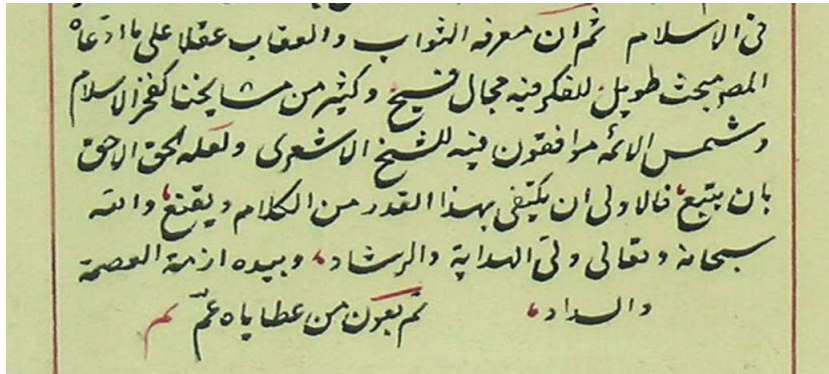 فى الاسلام ثم ان معرفه الثواب والعقاب عقلا على ما ادعاه
المصـ مبحث طويل للفكر فيه مجال فسيح وكثير من مشايخنا كفخر الاسلام
وشمس الائمه موافقون فيه للشيخ الاشعرى ولعله الحق الاحق
بان يتبع فالاولى ان يكتفى بهذا القدر من الكلام ويقنع والله
سبحانه وتعالى ولى الهداية والرشاد وبيده ازمة العصمة
والسداد تم بعون من عطاياه عم تم